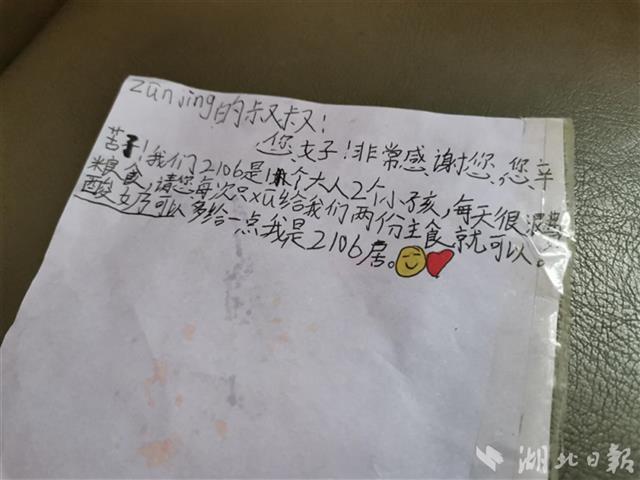 zūnjing的叔叔：
您好！非常感谢您，您辛
苦了！我们2106是1个大人2个小孩，每天很浪费
粮食，请您每次只xū给我们两份主食就可以。
酸奶可以多给一点我是2106居。
湖北日報